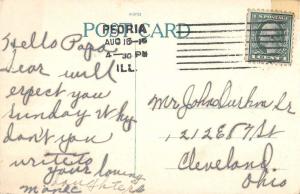 POST CARD
PEORIA
AUG 16
4-30 PM
ILL.
Hello Papa
Dear will
expect you
Sunday Why
don't you
write
your loving
daughter
Mr John Durkin Sr
1212 E 87 St
Cleveland
Ohio